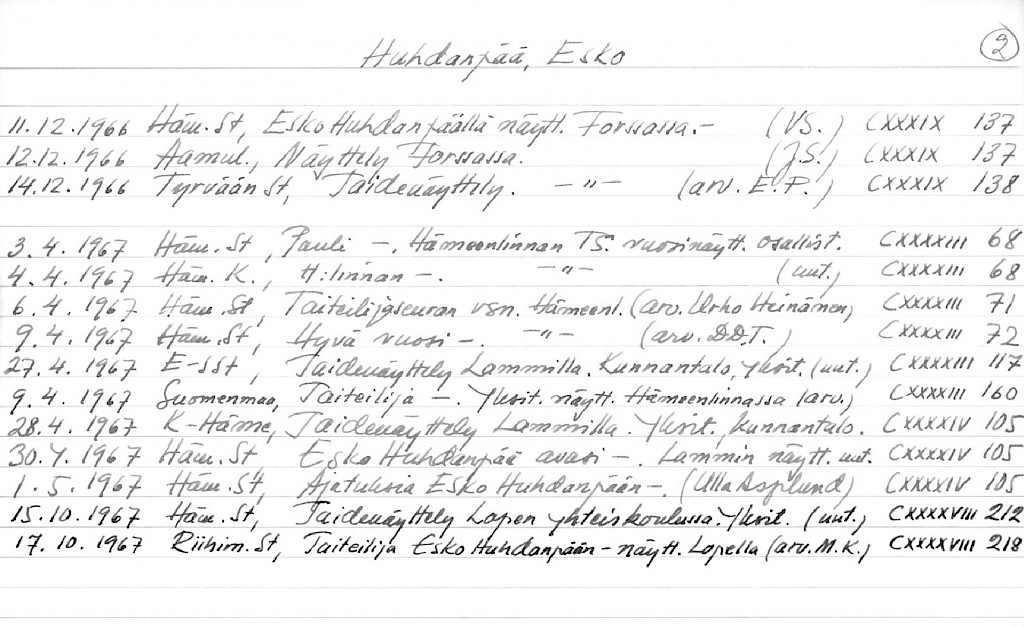 2
Huhdanpää, Esko
11.12.1966 Häm.St, Esko Huhdanpäällä näytt. Forssassa.- (VS.) CXXXIX 137
12.12.1966 Aamul., Näyttely Forssassa. (J.S.) CXXXIX 137
14.12.1966 Tyrvään St, Taidenäyttely. -"- (arv. E.P.) CXXXIX 138
3.4.1967 Häm.St, Pauli -. Hämeenlinnan TS: vuosinäytt. osallist. CXXXXIII 68
4.4.1967 Häm.K., H:linnan -. -"- (uut.) CXXXXIII 68
6.4.1967 Häm.St, Taiteilijaseuran vsn. Hämeenl. (arv. Urho Heinänen) CXXXXIII 71
9.4.1967 Häm.St, Hyvä vuosi -. -"- (arv. D.D.T.) CXXXXIII 72
27.4.1967 E-SSt, Taidenäyttely Lammilla. Kunnantalo, yksit. (uut.) CXXXXIII 117
9.4.1967 Suomenmaa, Taiteilija -. Yksit. näytt. Hämeenlinnassa (arv.) CXXXXIII 160
28.4.1967 K-Häme, Taidenäyttely Lammilla. Yksit., kunnantalo. CXXXXIV 105
30.4.1967 Häm.St, Esko Huhdanpää avasi -. Lammin näytt. uut. CXXXXIV 105
1.5.1967 Häm.St, Ajatuksia Esko Huhdanpään -. (Ulla Asplund) CXXXXIV 105
15.10.1967 Häm.St, Taidenäyttely Lopen yhteiskoulussa. Yksit. (uut.) CXXXXVIII 212
17.10.1967 Riihim.St, Taiteilija Esko Huhdanpään - näytt. Lopella (arv. M.K.) CXXXXVIII 218